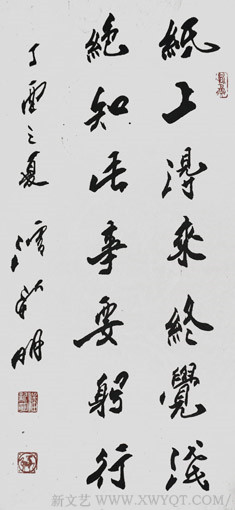 紙上得來終覺淺
絕知此事要躬行
丁酉之夏
新文艺 WWW.XWYQT.COM